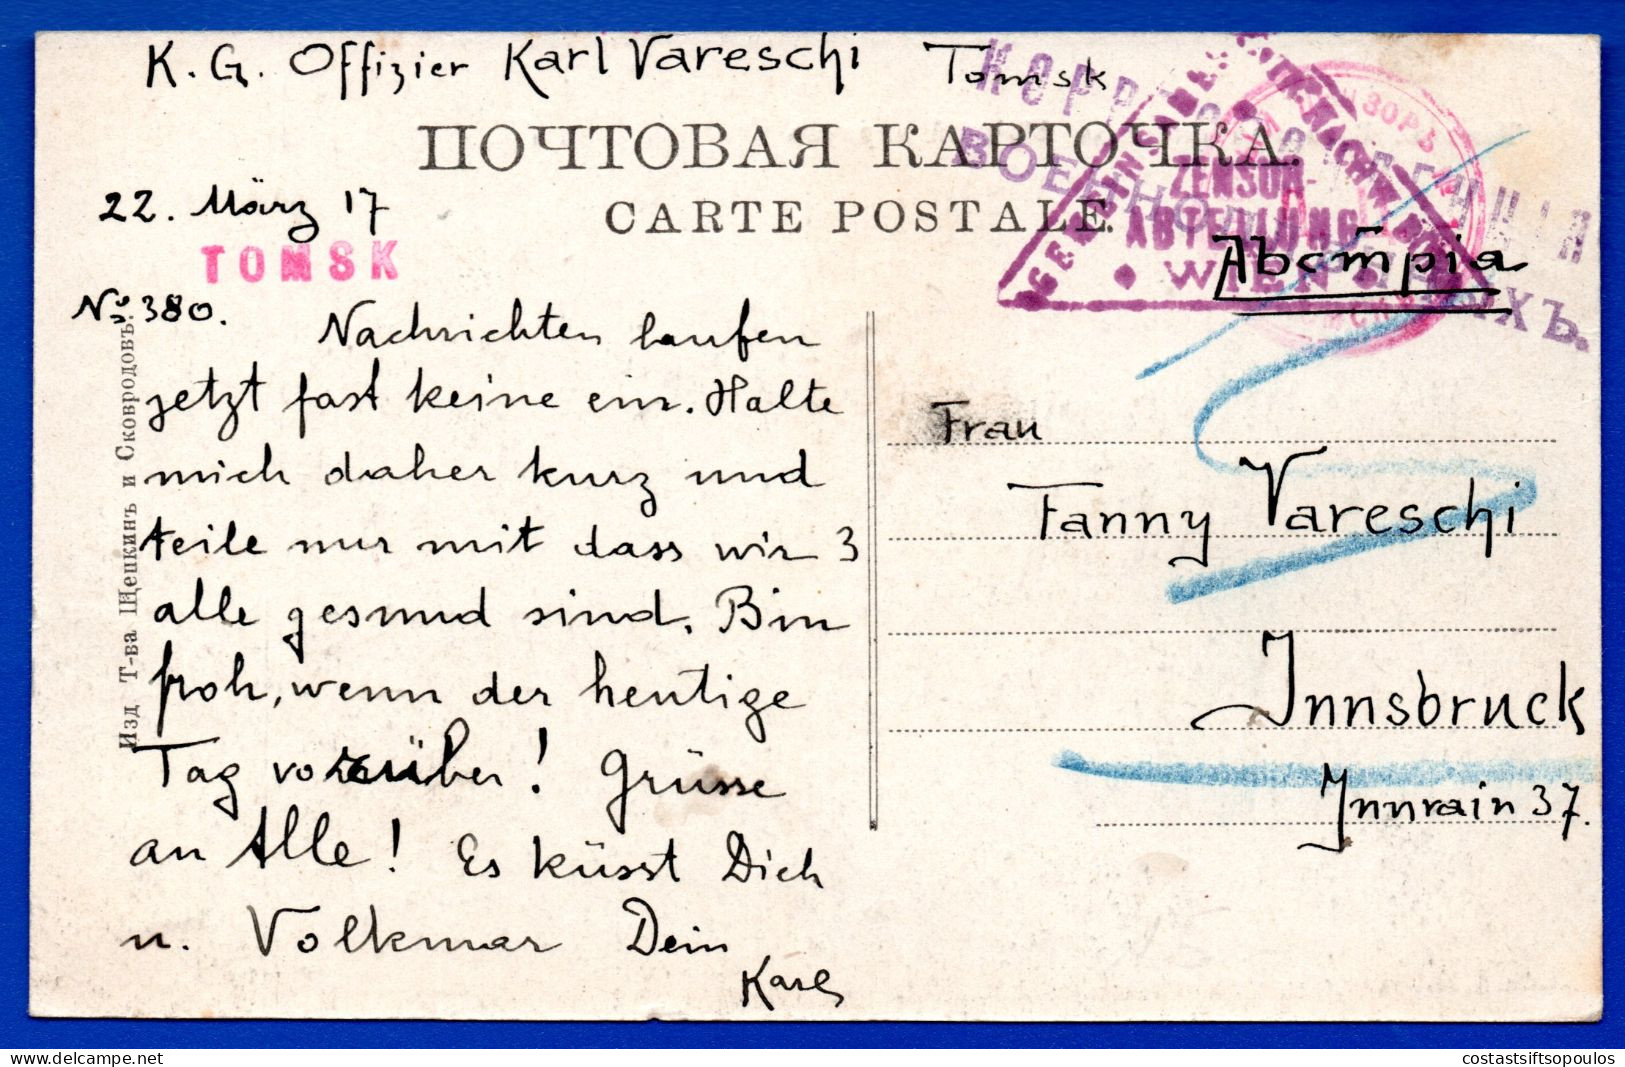 K. G. Offizier Karl Vareschi Tomsk
ПОЧТОВАЯ КАРТОЧКА.
CARTE POSTALE.
22. März 17
TOMSK
No 380.
Nachrichten laufen
jetzt fast keine ein. Halte
mich daher kurz und
teile nur mit dass wir 3
alle gesund sind. Bin
froh, wenn der heutige
Tag vorüber! Grüsse
an Alle! Es küsst Dich
u. Volkmar Dein
Karl
Изд Т-ва Щепкинъ и Сковродовъ.
ZENSUR-
ABTEILUNG
WIEN
Австрія
Frau
Fanny Vareschi
Innsbruck
Innrain 37.
delcampe.net
costastsiftsopoulos